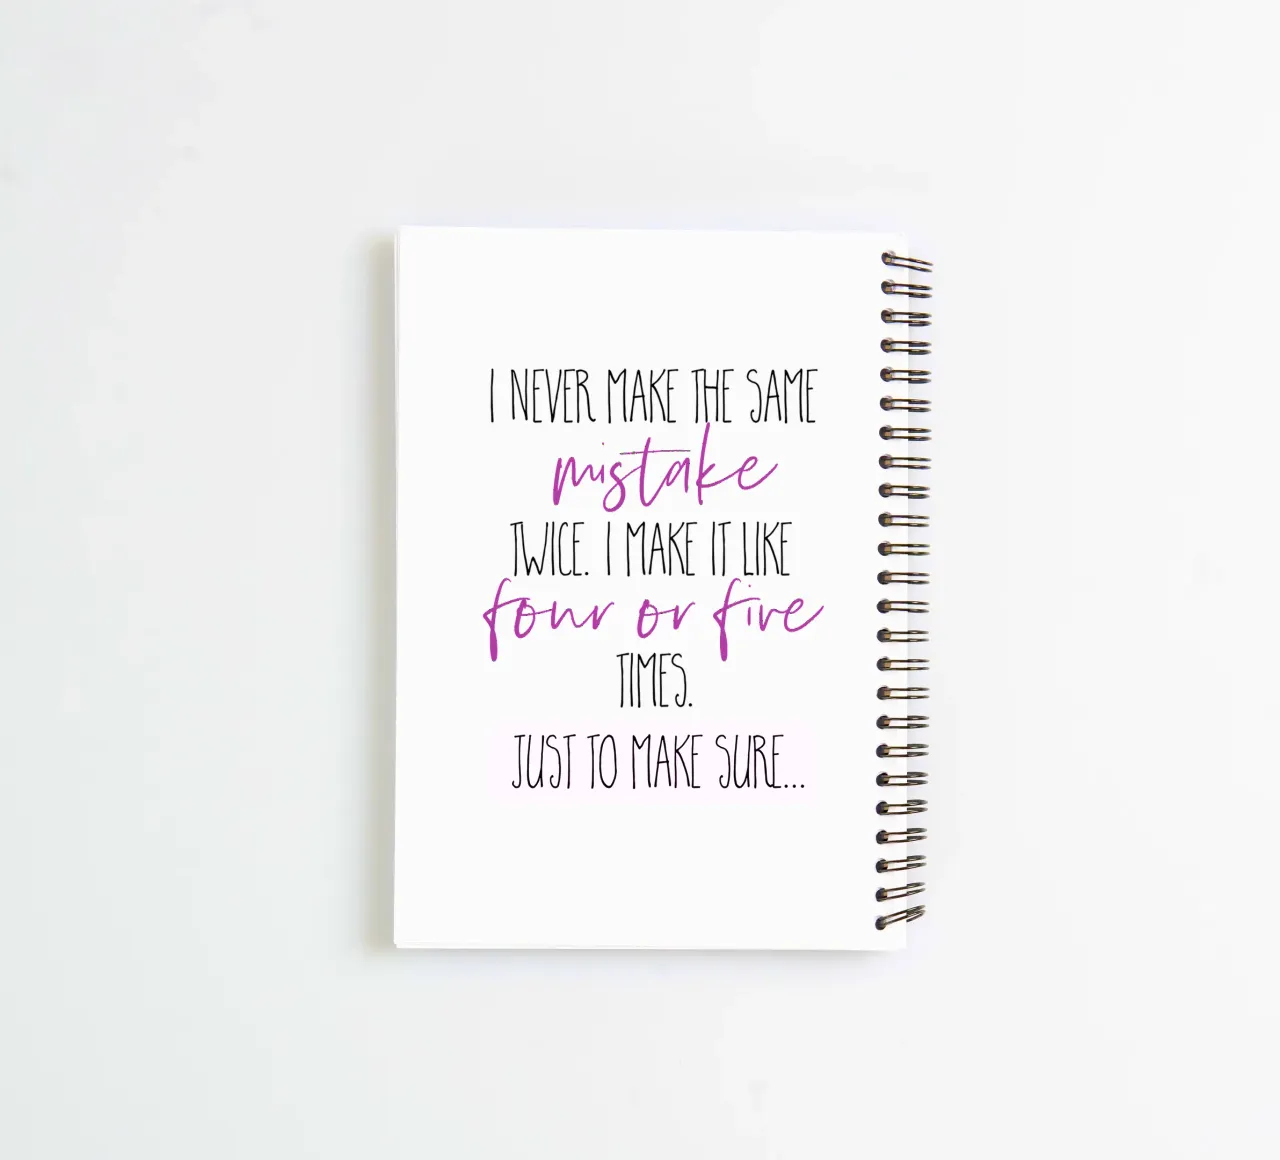 I NEVER MAKE THE SAME
mistake
TWICE. I MAKE IT LIKE
four or five
TIMES.
JUST TO MAKE SURE...